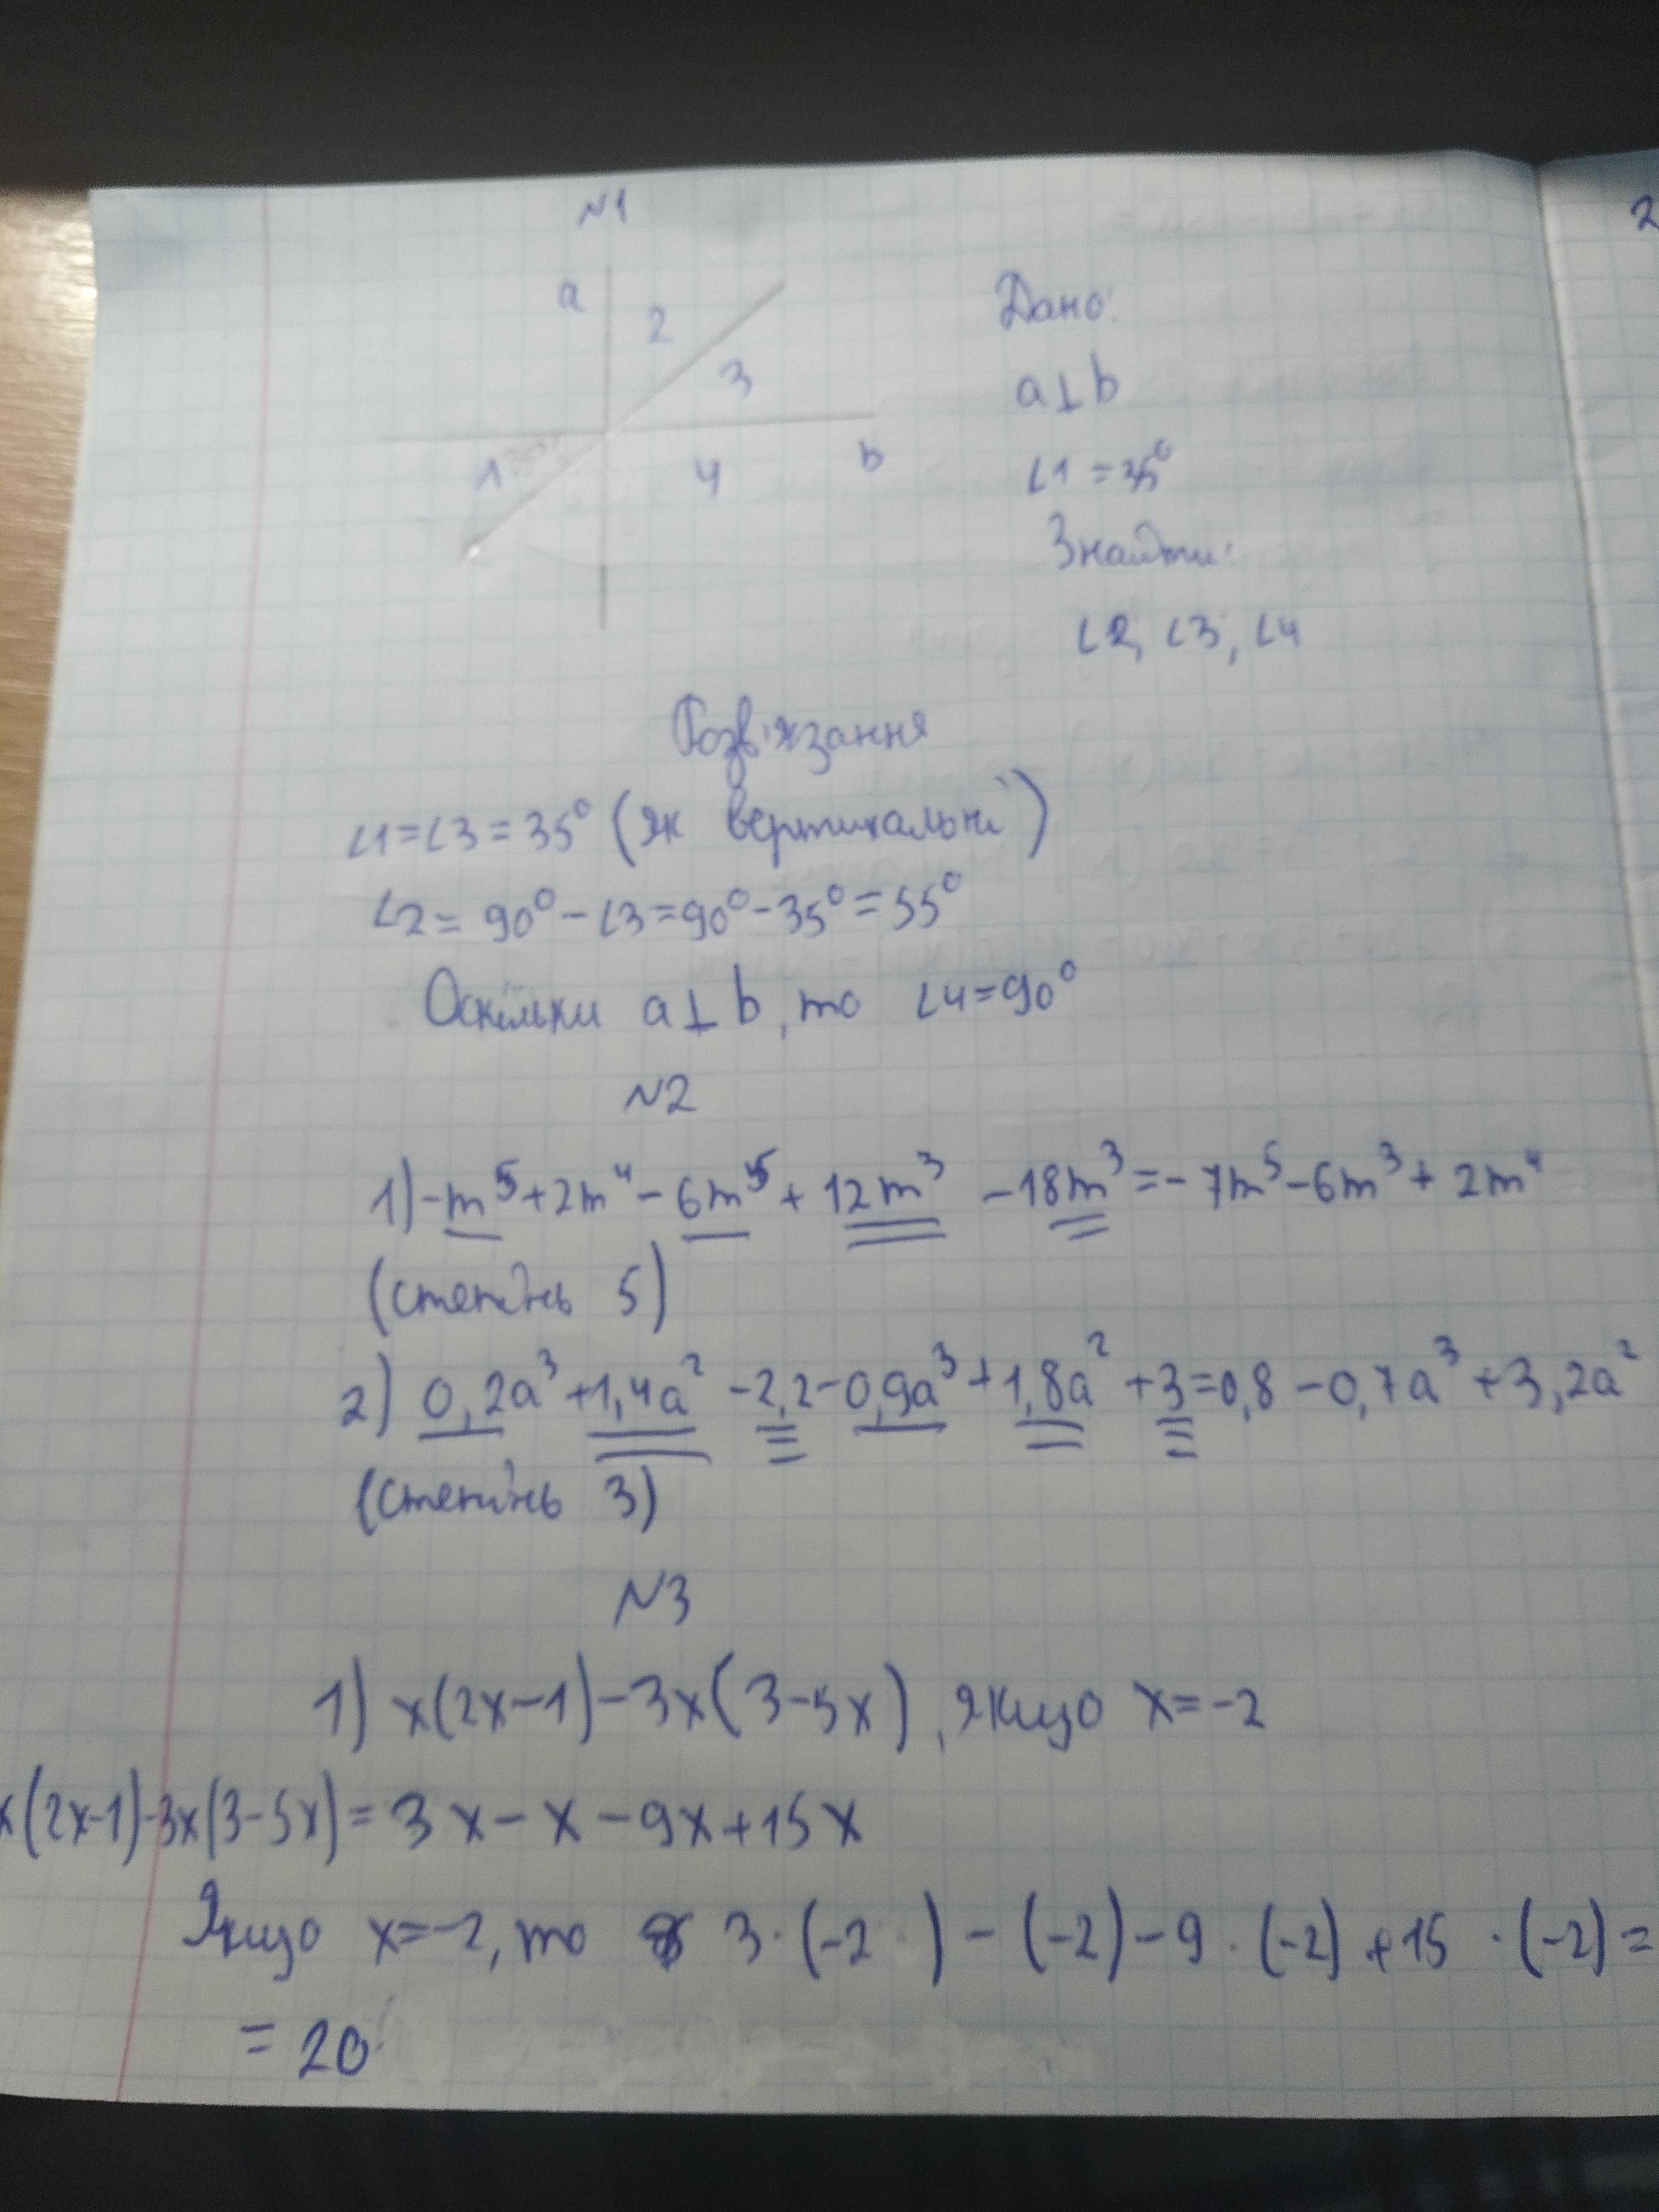 №1
2
a 2
3
1 4 b
Дано:
a⊥b
∠1 = 35°
Знайти:
∠2, ∠3, ∠4
Розв'язання
∠1=∠3=35° (як вертикальні)
∠2= 90°-∠3=90°-35°=55°
Оскільки a⊥b, то ∠4=90°
№2
1) -m⁵+2m⁴-6m⁵+12m³ -18m³=-7m⁵-6m³+2m⁴
(степінь 5)
2) 0,2a³+1,4a²-2,2-0,9a³+1,8a²+3=0,8-0,7a³+3,2a²
(степінь 3)
№3
1) x(2x-1)-3x(3-5x), якщо x=-2
x(2x-1)-3x(3-5x)=3x-x-9x+15x
Якщо x=-2, то 3·(-2)-(-2)-9·(-2)+15·(-2)=
= 20